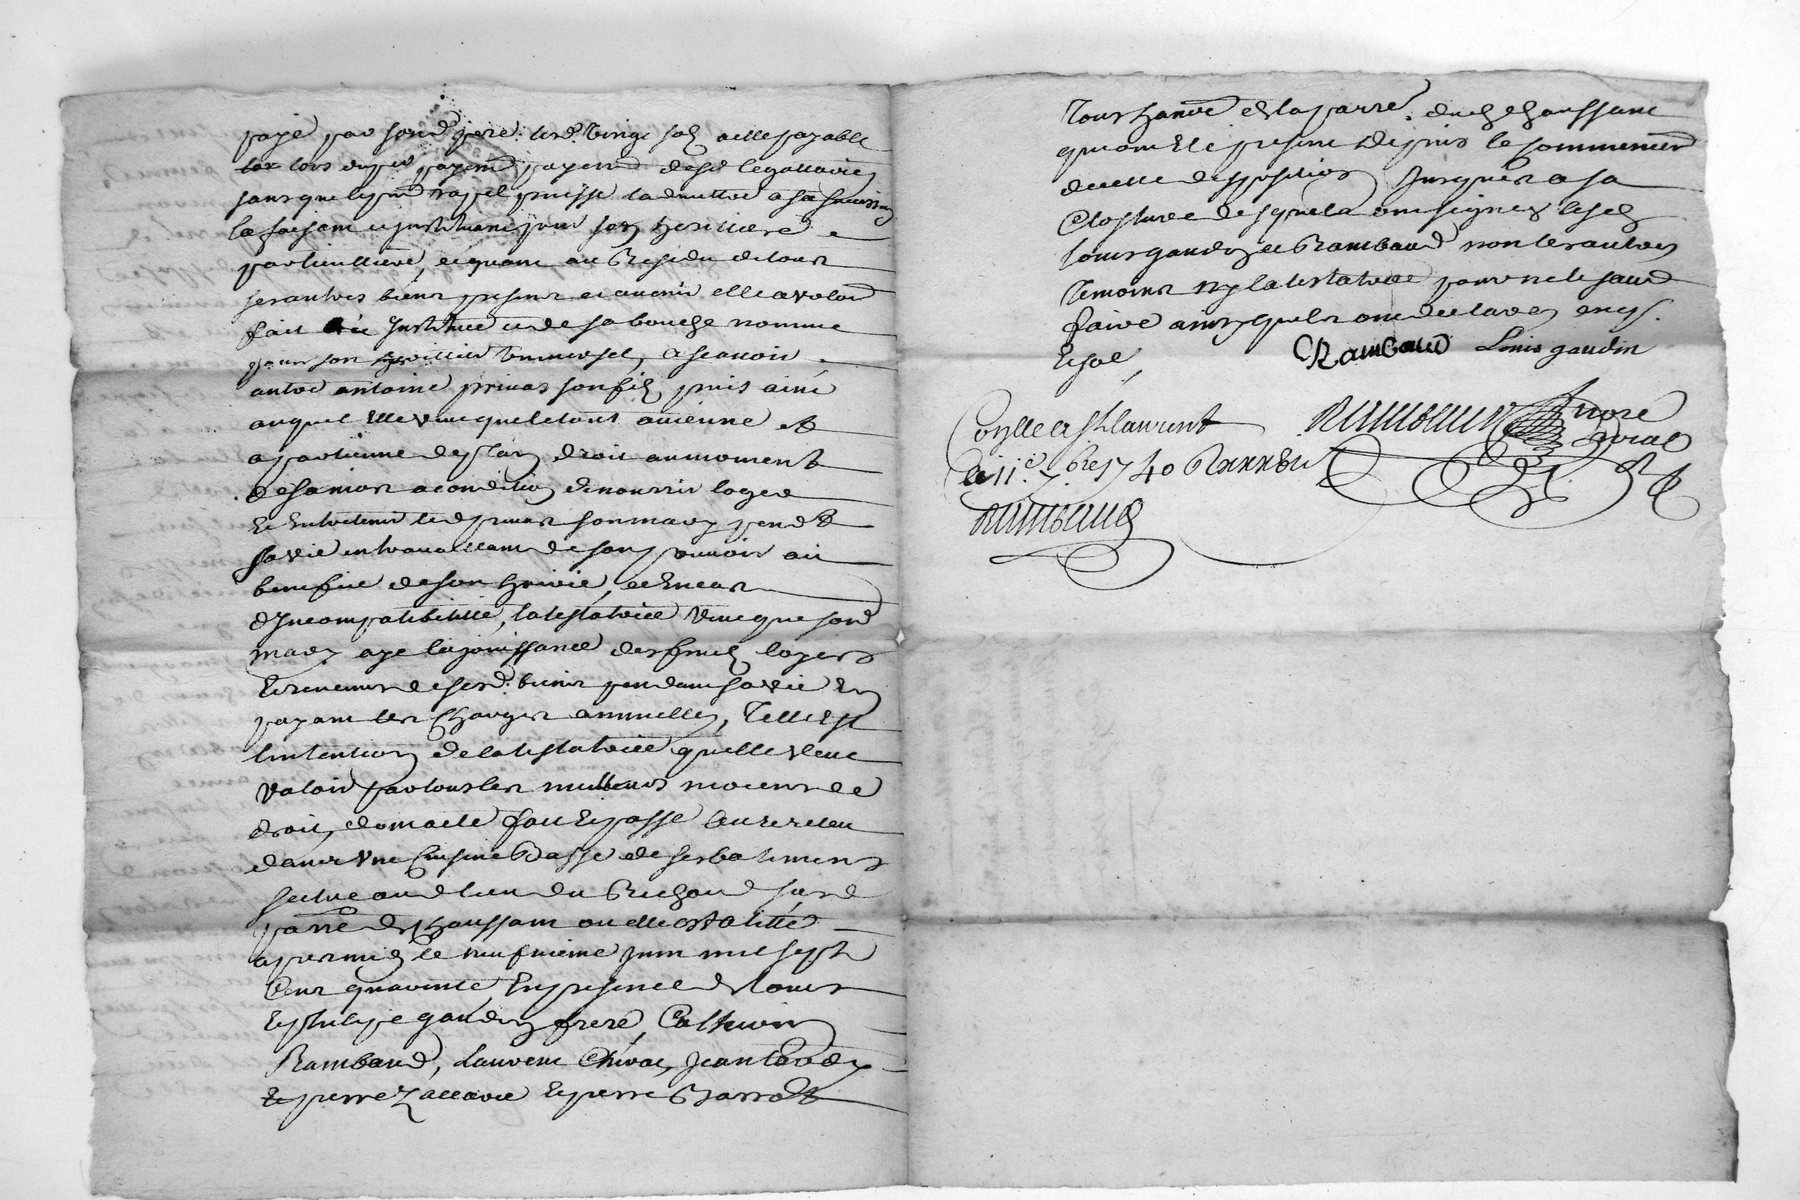 payé par sond pere. lesd vingt sols a elle payable
lors du pr payemt payemt de sd legattaires
sans que led rapel puisse l admettre a sa succession
la faisant et jnstituant pour son heritiere
particulliere, et quant au Residu de tous
ses autres biens presens et avenir elle a voleu
fait jnstitue et de sa bouche nomme
pour son heritier universel, a scavoir
autre antoine privas son fils puis ainé
auquel elle veut que le tout avienne et
apartienne de plain droit au moment
de sa mort a condition de nourrir loger
et entretenir led privas son mary pendt
sa vie en travaillant de son pouvoir au
benefice de son heritié, et en cas
d'jncompatibilitté, la testatrice veut que sond
mary aye la jouissance des fruits loyers
et revenus de sesd. biens pendant sa vie en
payant les charges annuelles, telle est
l intention de la testatrice qu elle veut
valoir par tous les meilleurs moiens de
droit, dont acte fait et passé leu et releu
dans une cuisine Basse de ses batiments
scitue aud lieu du Richoud susd
parre de chaussant ou elle est alitté
apres midy le neufvieme juin mil sept
cens quarente, En presence de louis
et philipe gaudin frere, Cathérin
Rambaud, Laurent Chivat, jean
et pierre Zaccarie et pierre Barrot
tous hants de la parre. dud chaussant
qui ont eté presens depuis le commencemt
de cette disposition jusques a sa
closture desquels ont signez lesds
louis gaudin et Rambaud non les autres
temoins ny la testatrice pour ne le scavr
faire ainsy qu ils ont declaré enqs.
et sol,
CRambaud Louis gaudin
André
privas
Conlle a St laurent
le 11e 7bre 1740